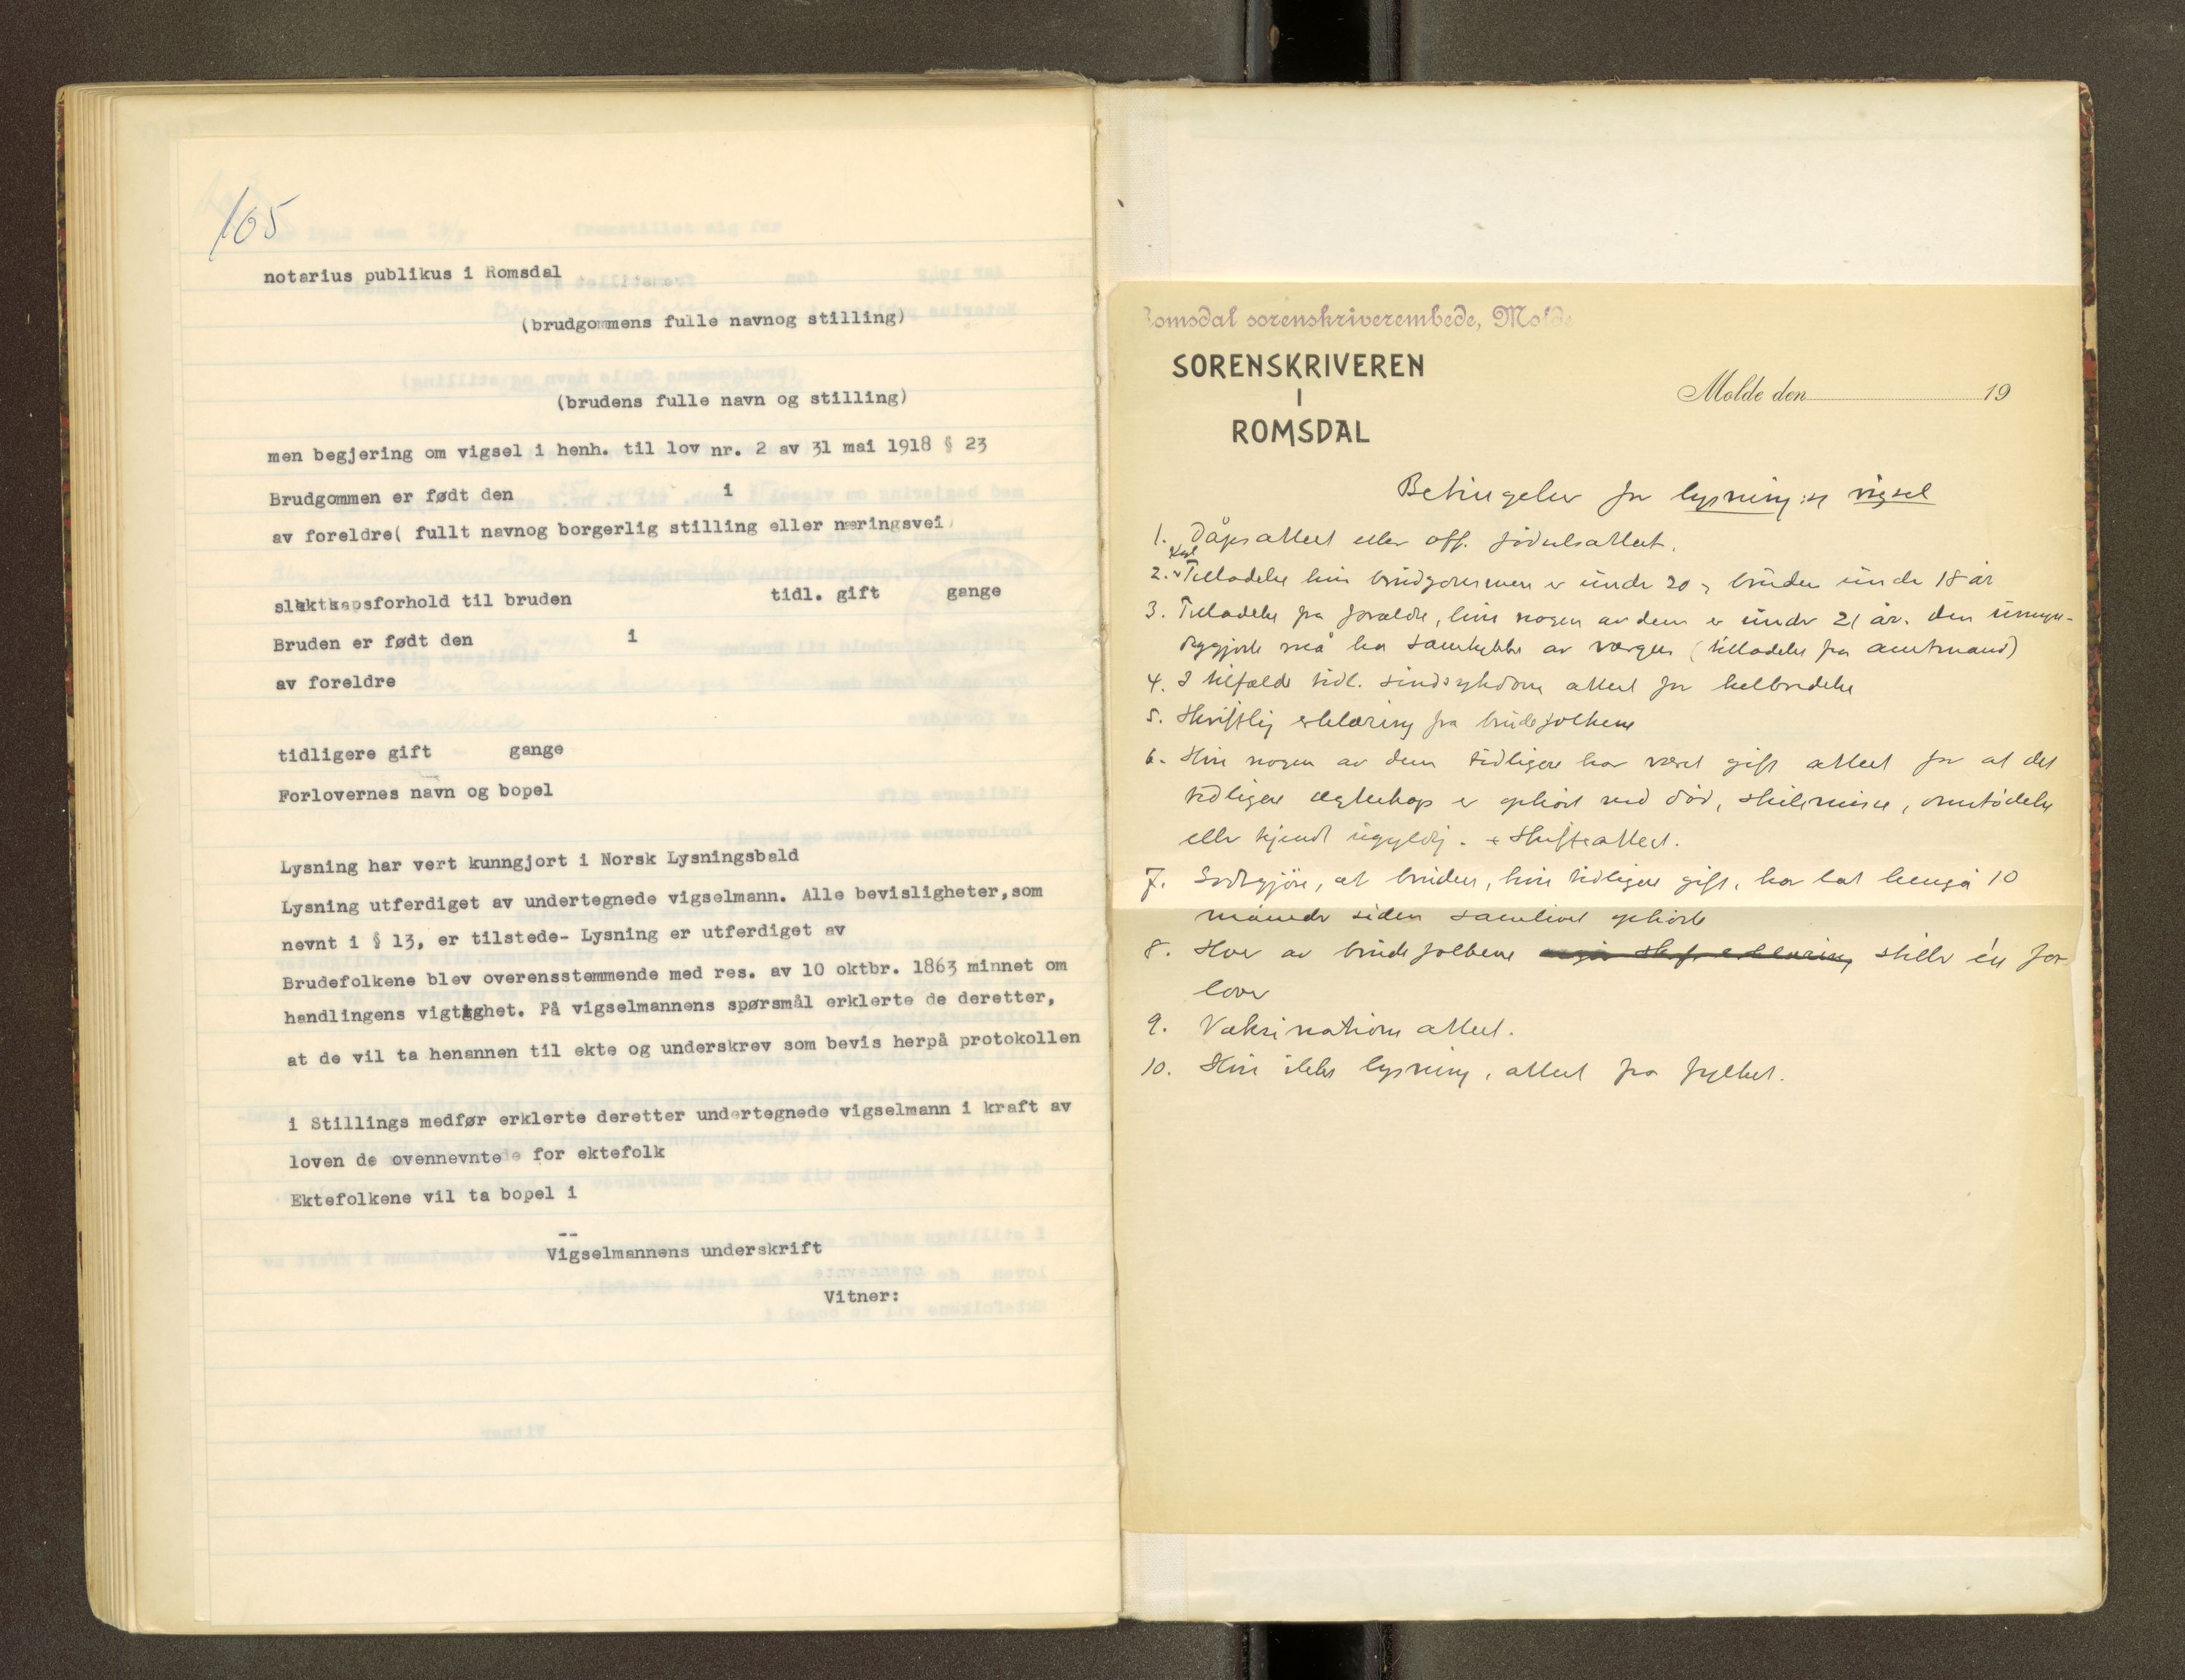 105
notarius publikus i Romsdal
(brudgommens fulle navnog stilling)
(brudens fulle navn og stilling)
men begjering om vigsel i henh. til lov nr. 2 av 31 mai 1918 § 23
Brudgommen er født den i
av foreldre( fullt navnog borgerlig stilling eller næringsvei)
slektskapsforhold til bruden tidl. gift gange
Bruden er født den i
av foreldre
tidligere gift gange
Forlovernes navn og bopel
Lysning har vert kunngjort i Norsk Lysningsbald
Lysning utferdiget av undertegnede vigselmann. Alle bevisligheter,som
nevnt i § 13, er tilstede- Lysning er utferdiget av
Brudefolkene blev overensstemmende med res. av 10 oktbr. 1863 minnet om
handlingens vigtighet. På vigselmannens spørsmål erklerte de deretter,
at de vil ta henannen til ekte og underskrev som bevis herpå protokollen
i Stillings medfør erklerte deretter undertegnede vigselmann i kraft av
loven de ovennevnte for ektefolk
Ektefolkene vil ta bopel i
--
Vigselmannens underskrift
Vitner:
Romsdal sorenskriverembede, Molde
SORENSKRIVEREN
I
ROMSDAL
Molde den 19
Betingelser for lysning og vigsel
1. Dåpsattest eller off. fødselsattest.
2. Tilladelse hvis brudgommen er under 20, bruden under 18 år
3. Tilladelse fra forældre, hvis nogen av dem er under 21 år. den umyn-
diggjorte må ha samtykke av vergen (tilladelse fra amtmand)
4. I tilfælde tidl. sindsykdom attest for helbredelse
5. Skriftlig erklæring fra brudefolkene
6. Hvis nogen av dem tidligere har været gift attest for at det
tidligere ægteskap er ophørt ved død, skilsmisse, omstødelse
eller kjendt ugyldig. + Skifteattest.
7. Godtgjøre, at bruden, hvis tidligere gift, har lat hengå 10
måneder siden samlivet ophørte
8. Hver av brudefolkene stiller én for-
lover
9. Vaksinationsattest.
10. Hvis ikke lysning, attest fra fylket.